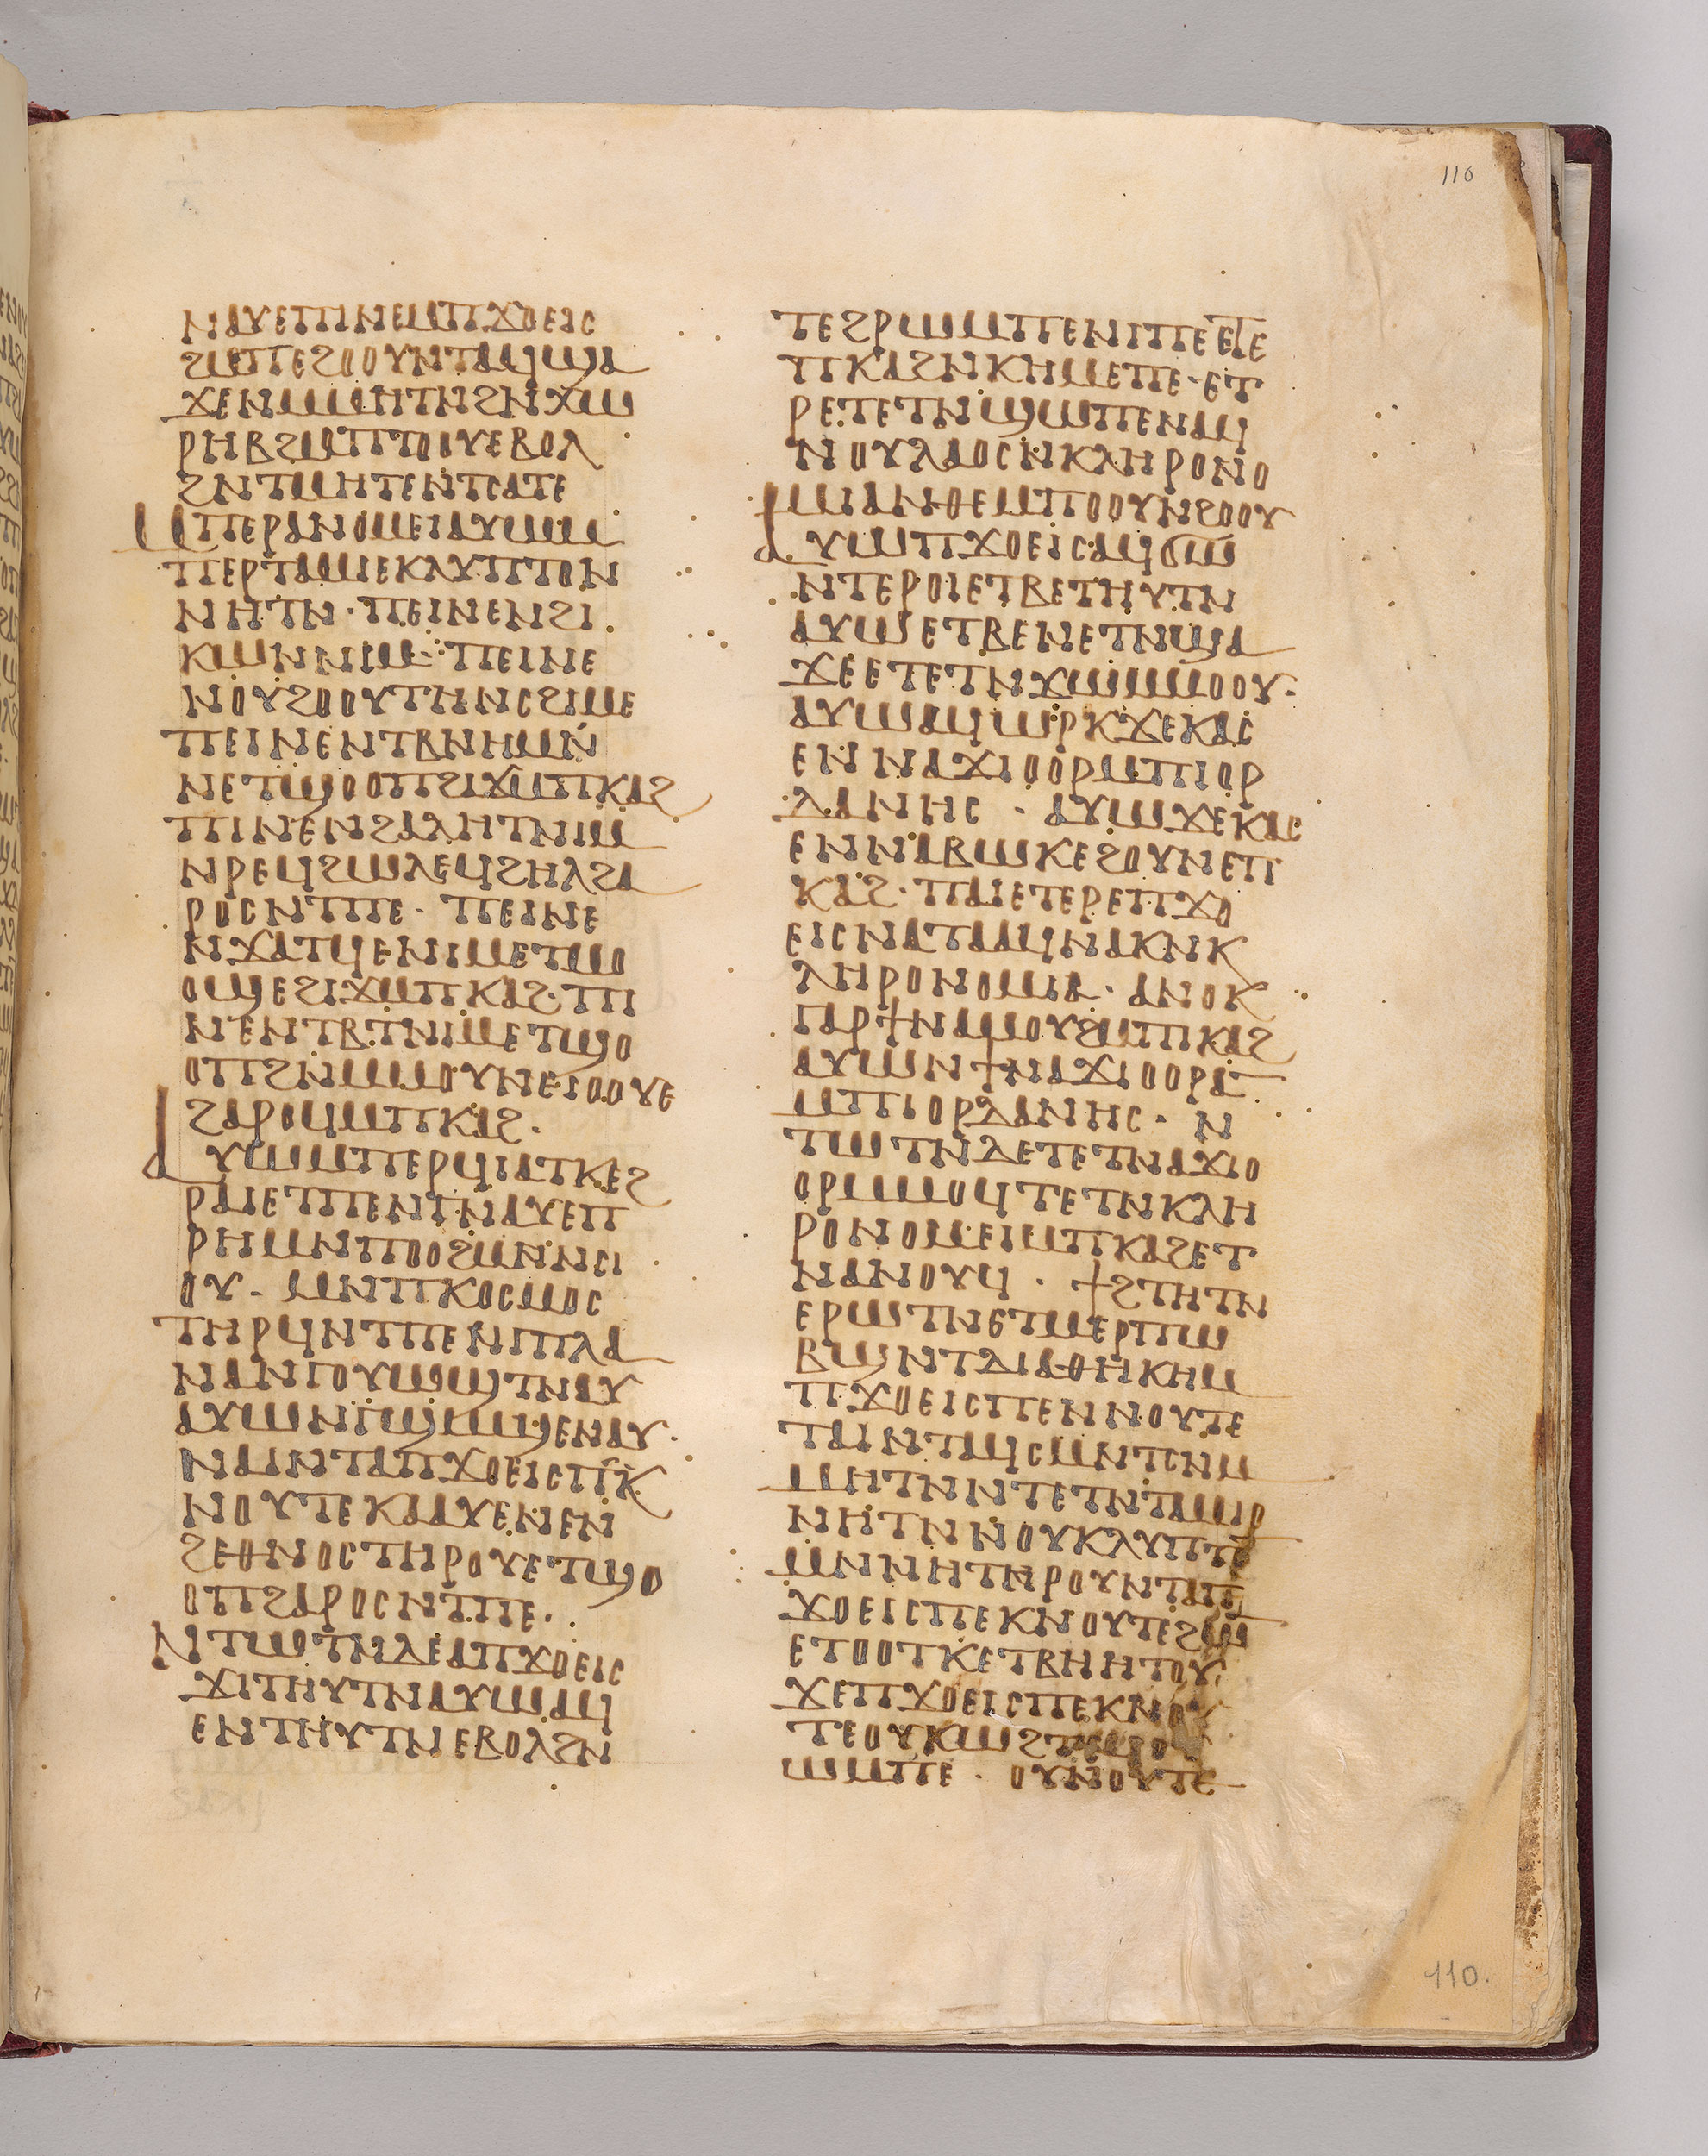 ⲛⲁⲩⲉⲡⲓⲛⲉⲙⲡϫⲟⲉⲓⲥ
ϩⲙⲡⲉϩⲟⲟⲩⲛⲧⲁϥϣⲁ
ϫⲉⲛⲙⲙⲏⲧⲛϩⲛⲭⲱ
ⲣⲏⲃϩⲙⲡⲧⲟⲟⲩⲉⲃⲟⲗ
ϩⲛⲧⲙⲏⲧⲉⲛⲧⲥⲁⲧⲉ
ⲙⲡⲉⲣⲁⲛⲟⲙⲉⲓⲁⲩⲱⲙ
ⲡⲉⲣⲧⲁⲙⲓⲉⲕⲗⲩⲡⲧⲟⲛ
ⲛⲏⲧⲛ · ⲡⲉⲓⲛⲉⲛϩⲓ
ⲕⲱⲛⲛⲓⲙ · ⲡⲉⲓⲛⲉ
ⲛⲟⲩϩⲟⲟⲩⲧⲏⲛⲥϩⲓⲙⲉ
ⲡⲉⲓⲛⲉⲛⲧⲃⲛⲏⲙⲛ
ⲛⲉⲧϣⲟⲟⲡϩⲓϫⲙⲡⲕⲁϩ
ⲡⲓⲛⲉⲛϩⲁⲗⲏⲧⲛⲓⲙ
ⲛⲣⲉϥϩⲱⲗⲉϥϩⲏⲗϩⲁ
ⲣⲟⲥⲛⲧⲡⲉ · ⲡⲉⲓⲛⲉ
ⲛϫⲁⲧϥⲉⲛⲓⲙⲉⲧⲙⲟ
ⲟϣⲉϩⲓϫⲙⲡⲕⲁϩ · ⲡⲓ
ⲛⲉⲛⲧⲃⲧⲛⲓⲙⲉⲧϣⲟ
ⲟⲡϩⲛⲙⲙⲟⲩⲛⲉⲓⲟⲟⲩⲉ
ϩⲁⲣⲟϥⲙⲡⲕⲁϩ ·
ⲁⲩⲱⲙⲡⲉⲣϥⲓⲁⲧⲕⲉϩ
ⲣⲁⲓⲉⲧⲡⲉⲛⲅⲛⲁⲩⲉⲡ
ⲣⲏⲙⲛⲡⲟⲟϩⲙⲛⲛⲥⲓ
ⲟⲩ · ⲙⲛⲡⲕⲟⲥⲙⲟⲥ
ⲧⲏⲣϥⲛⲧⲡⲉⲛⲅⲡⲗⲁ
ⲛⲁⲛⲅⲟⲩⲱϣⲧⲛⲁⲩ
ⲁⲩⲱⲛⲅϣⲙϣⲉⲛⲁⲩ ·
ⲛⲁⲓⲛⲧⲁⲡϫⲟⲉⲓⲥⲡⲕ
ⲛⲟⲩⲧⲉⲕⲁⲁⲩⲉⲛⲉⲛ
ϩⲉⲑⲛⲟⲥⲧⲏⲣⲟⲩⲉⲧϣⲟ
ⲟⲡϩⲁⲣⲟⲥⲛⲧⲡⲉ ·
ⲛⲧⲱⲧⲛⲇⲉⲁⲡϫⲟⲉⲓⲥ
ϫⲓⲧⲏⲩⲧⲛⲁⲩⲱⲁϥ
ⲉⲛⲧⲏⲩⲧⲛⲉⲃⲟⲗϩⲛ
ⲧⲉϩⲣⲱⲙⲡⲉⲛⲓⲡⲉⲉⲧⲉ
ⲡⲕⲁϩⲛⲕⲏⲙⲉⲡⲉ · ⲉⲧ
ⲣⲉⲧⲉⲧⲛϣⲱⲡⲉⲛⲁϥ
ⲛⲟⲩⲗⲁⲟⲥⲛⲕⲗⲏⲣⲟⲛⲟ
ⲙⲓⲁⲛⲑⲉⲙⲡⲟⲟⲩⲛϩⲟⲟⲩ
ⲁⲩⲱⲡϫⲟⲉⲓⲥⲁϥϭⲱ
ⲛⲧⲉⲣⲟⲓⲉⲧⲃⲉⲧⲏⲩⲧⲛ
ⲁⲩⲱⲉⲧⲃⲉⲛⲉⲧⲛϣⲁ
ϫⲉⲉⲧⲉⲧⲛϫⲱⲙⲙⲟⲟⲩ ·
ⲁⲩⲱⲁϥⲱⲣⲕϫⲉⲕⲁⲥ
ⲉⲛⲛⲁϫⲓⲟⲟⲣⲙⲡⲓⲟⲣ
ⲇⲁⲛⲏⲥ · ⲁⲩⲱϫⲉⲕⲁⲥ
ⲉⲛⲛⲁⲃⲱⲕⲉϩⲟⲩⲛⲉⲡ
ⲕⲁϩ · ⲡⲁⲓⲉⲧⲉⲣⲉⲡϫⲟ
ⲉⲓⲥⲛⲁⲧⲁⲁϥⲛⲁⲕⲛⲕ
ⲗⲏⲣⲟⲛⲟⲙⲓⲁ · ⲁⲛⲟⲕ
ⲅⲁⲣϯⲛⲁⲙⲟⲩϩⲙⲡⲓⲕⲁϩ
ⲁⲩⲱⲛϯⲛⲁϫⲓⲟⲟⲣⲁⲛ
ⲙⲡⲓⲟⲣⲇⲁⲛⲏⲥ · ⲛ
ⲧⲱⲧⲛⲇⲉⲧⲉⲧⲛⲁϫⲓⲟ
ⲟⲣⲙⲙⲟϥⲧⲉⲧⲛⲕⲗⲏ
ⲣⲟⲛⲟⲙⲉⲓⲙⲡⲕⲁϩⲉⲧ
ⲛⲁⲛⲟⲩϥ · ϯϩⲧⲏⲧⲛ
ⲉⲣⲱⲧⲛⲉⲧⲙⲉⲣⲡⲱ
ⲃϣⲛⲧⲇⲓⲁⲑⲏⲕⲏⲙ
ⲡϫⲟⲉⲓⲥⲡⲉⲛⲛⲟⲩⲧⲉ
ⲧⲁⲓⲛⲧⲁϥⲥⲙⲛⲧⲥⲛⲙ
ⲙⲏⲧⲛⲛⲧⲉⲧⲛⲧⲁⲙⲓⲟ
ⲛⲏⲧⲛⲛⲟⲩⲕⲗⲩⲡⲧ
ⲙⲛⲛⲏⲧⲏⲣⲟⲩⲛⲧⲁⲡ
ϫⲟⲉⲓⲥⲡⲉⲕⲛⲟⲩⲧⲉϩⲱⲛ
ⲉⲧⲟⲟⲧⲕⲉⲧⲃⲏⲏⲧⲟⲩ
ϫⲉⲡϫⲟⲉⲓⲥⲡⲉⲕⲛⲟⲩ
ⲧⲉⲟⲩⲕⲱϩⲧ
ⲱⲙⲡⲉ · ⲟⲩⲛⲟⲩⲧⲉ
110
110.